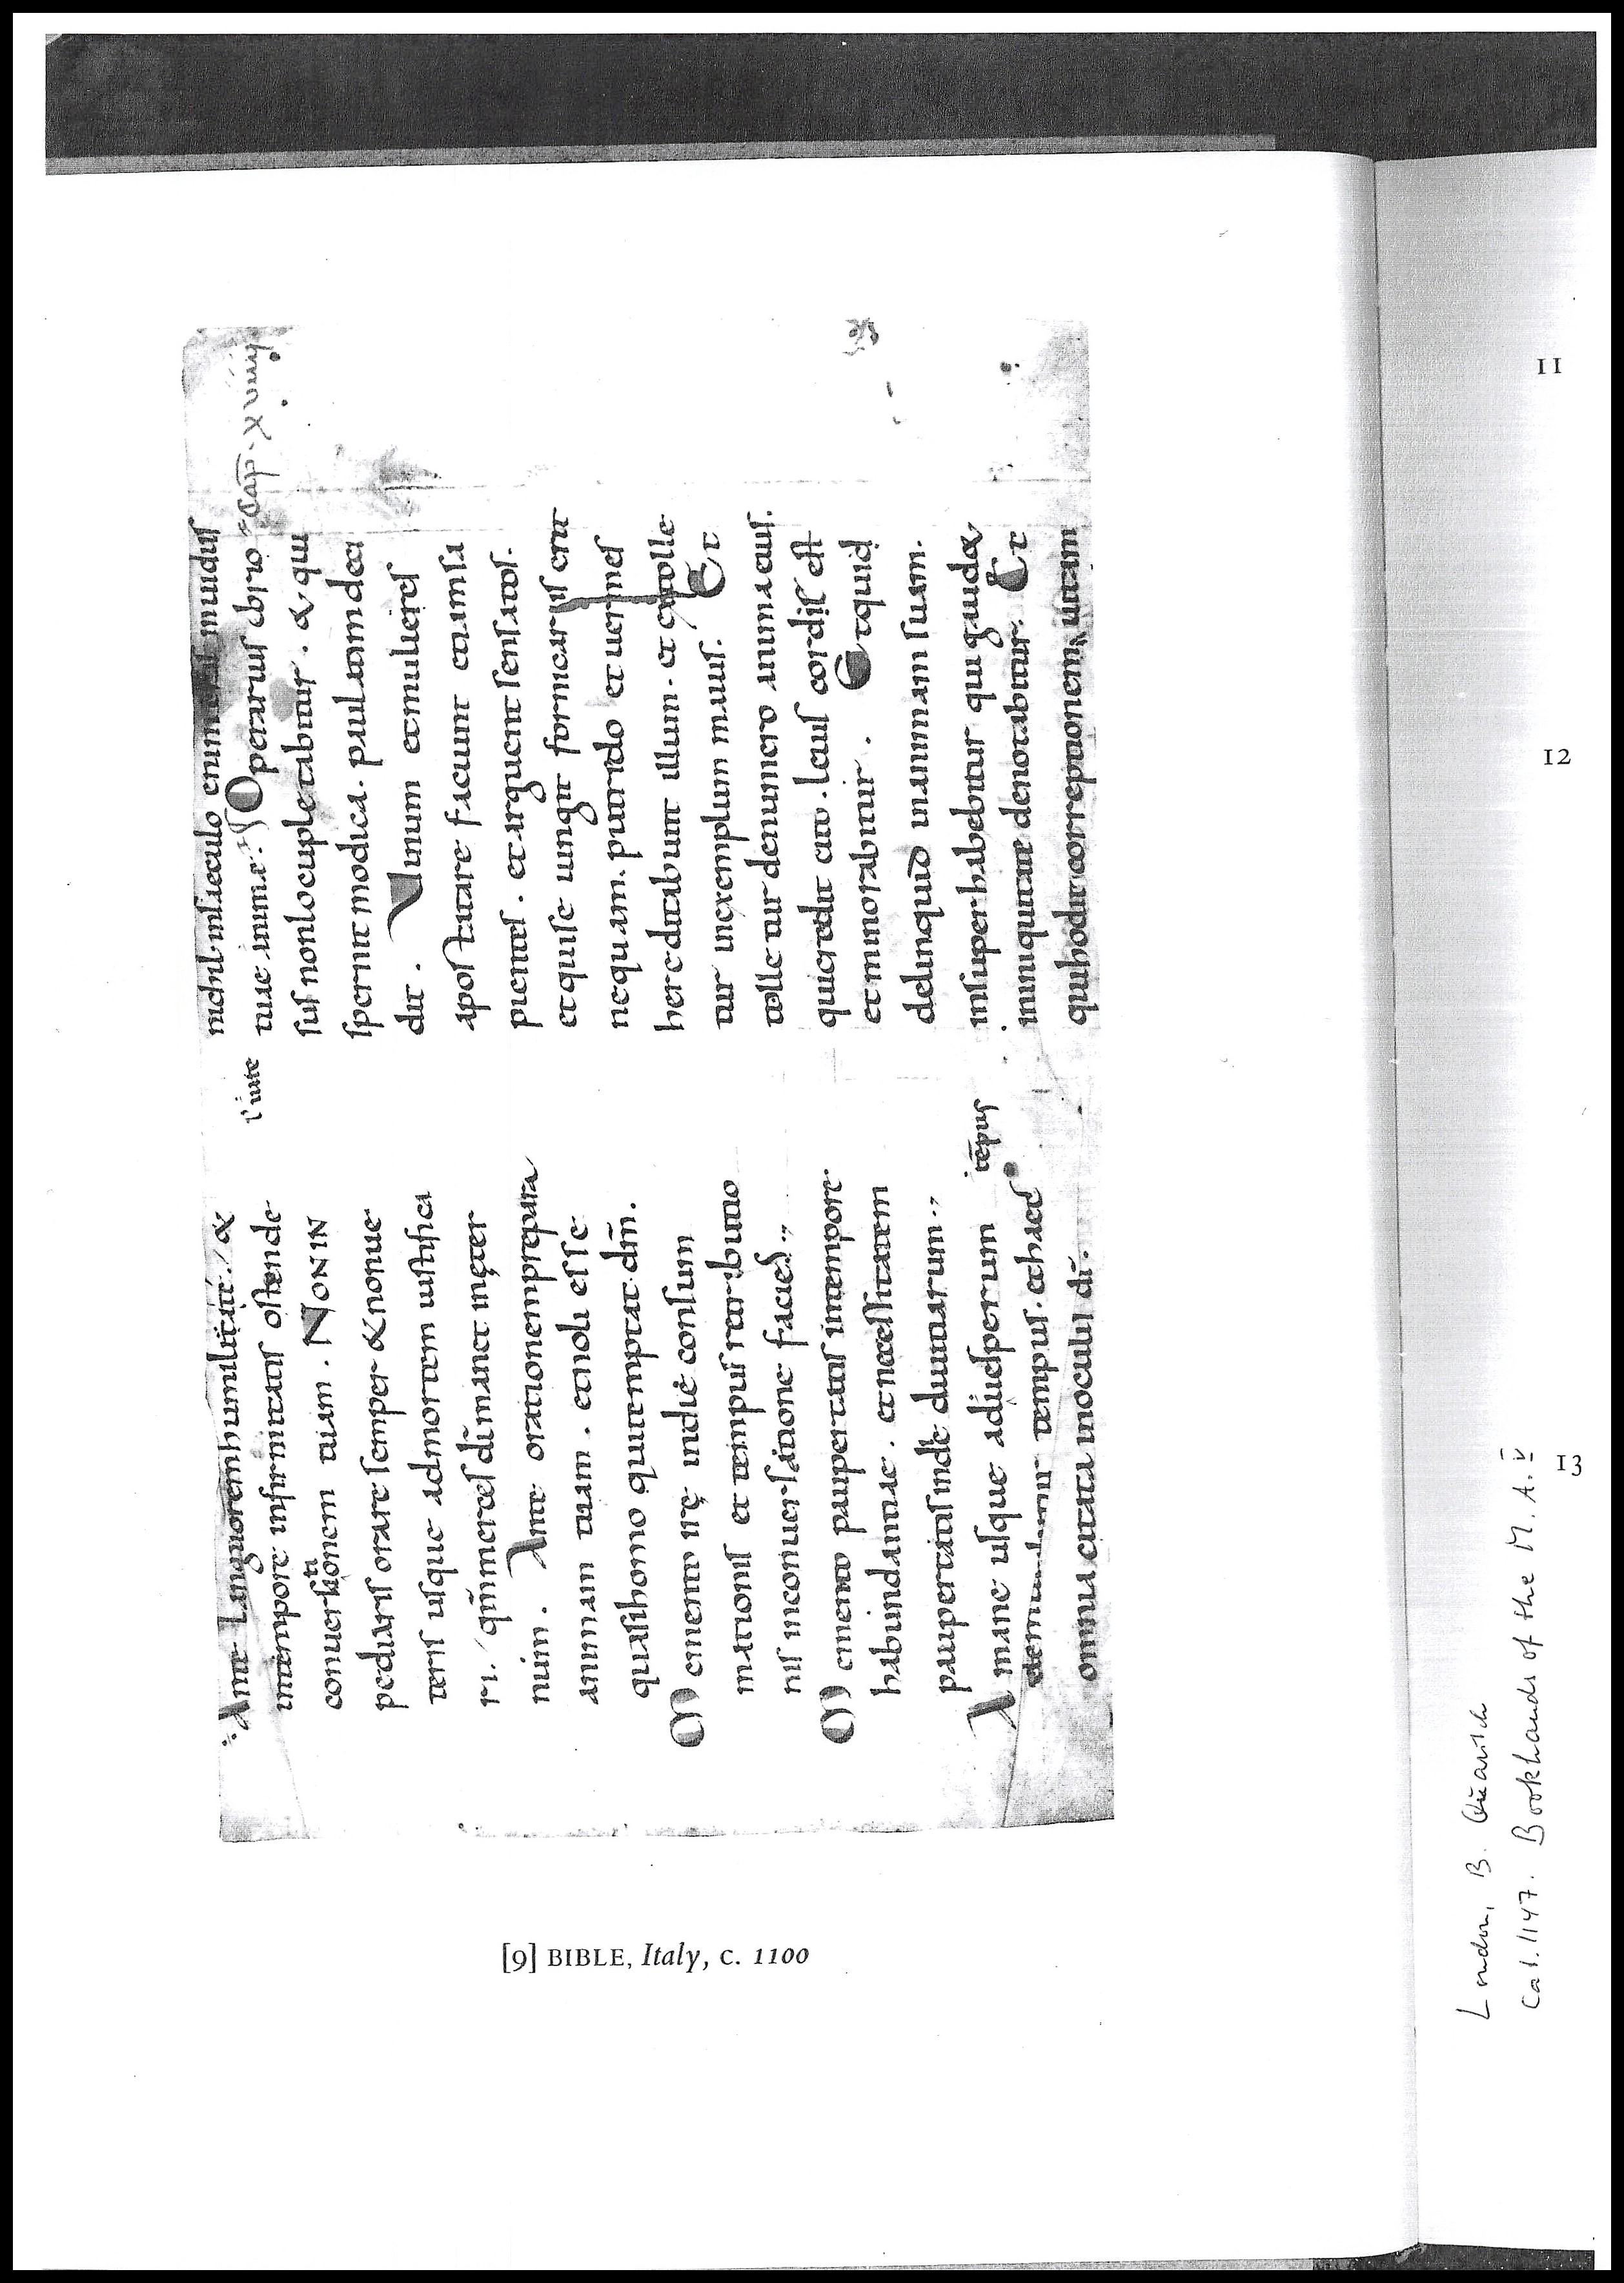 Ante languorem humilitate / &
intempore infirmitatis ostende
conuersationem tuam . NON IN
pediaris orare semper & nonue
teris usque admortem iustifica
ri . / qm̄ merces dī manet in ęter
num . Ante orationem prepara
animam tuam . et noli esse
quasi homo qui temptat dm̄ .
Memento irę in die consum
mationis et tempus retributio
nis in conuersatione faciei .,
Memento paupertatis in tempore
habundantiae . et necessitatem
paupertatis in die diuitiarum .,
A mane usque aduesperum
tempus . et haec
omnia citata in oculis dī .
tēpus
l' iure
nichil in saeculo
tuae animę . Operarius ebrio
sus non locupletabitur . & qui
spernit modica . paulatim deci
dit . Uinum et mulieres
apostatare faciunt etiam sa
pientes . et arguent sensatos .
et qui se iungit fornicariis erit
nequam . putrido et uermes
hereditabunt illum . et extolle
tur in exemplum maius . Et
tolletur de numero anima eius .
qui credit cito . leuis cordis est
et minorabitur . Et quid
delinquid in animam suam .
insuper habebitur qui gaudet
iniquitate denotabitur . Et
qui hodit correptionem uitam
cap . xviiij
[9] BIBLE, Italy, c. 1100
11
12
13
London, B. Quaritch
Cat. 1147. Bookhands of the M. A. V